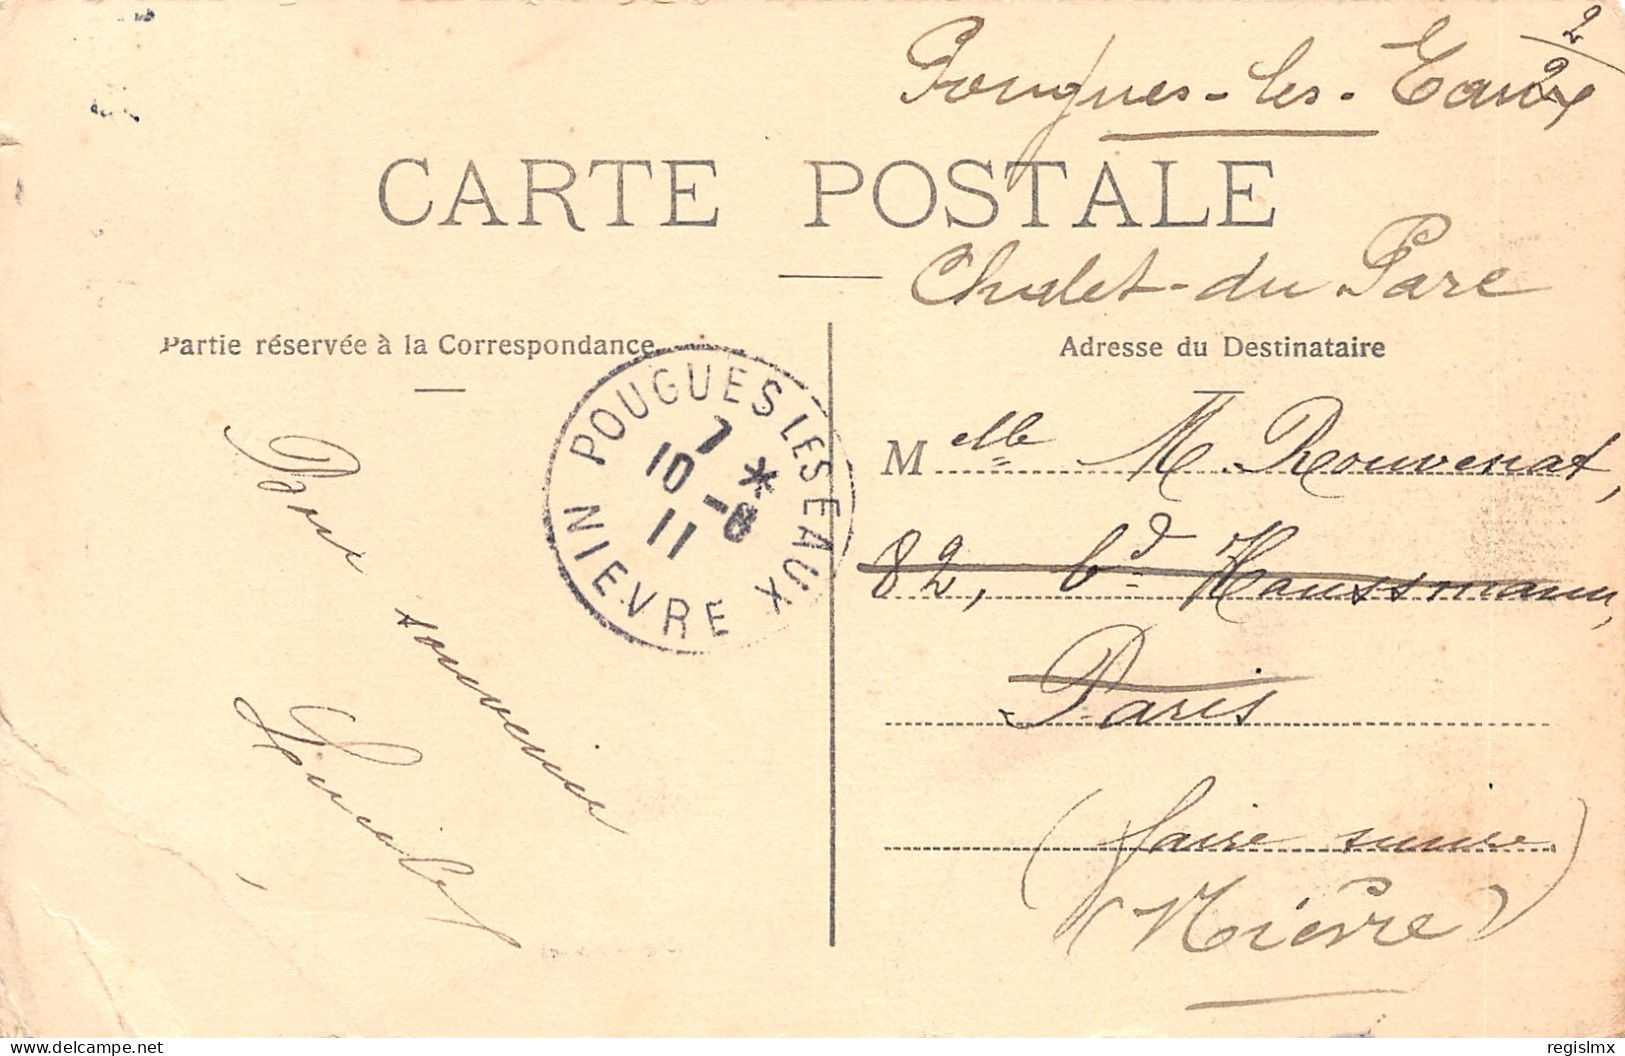 2
2
Pougues-les-Eaux
CARTE POSTALE
Chalet-du Parc
Partie réservée à la Correspondance
Adresse du Destinataire
POUGUES LES EAUX
7 *
10 -8
11
NIEVRE
Melle M. Rouvenat,
82, bd Haussmann,
Paris
(faire suivre)
(Nièvre)
Bon
souvenir
delcampe.net
regislmx